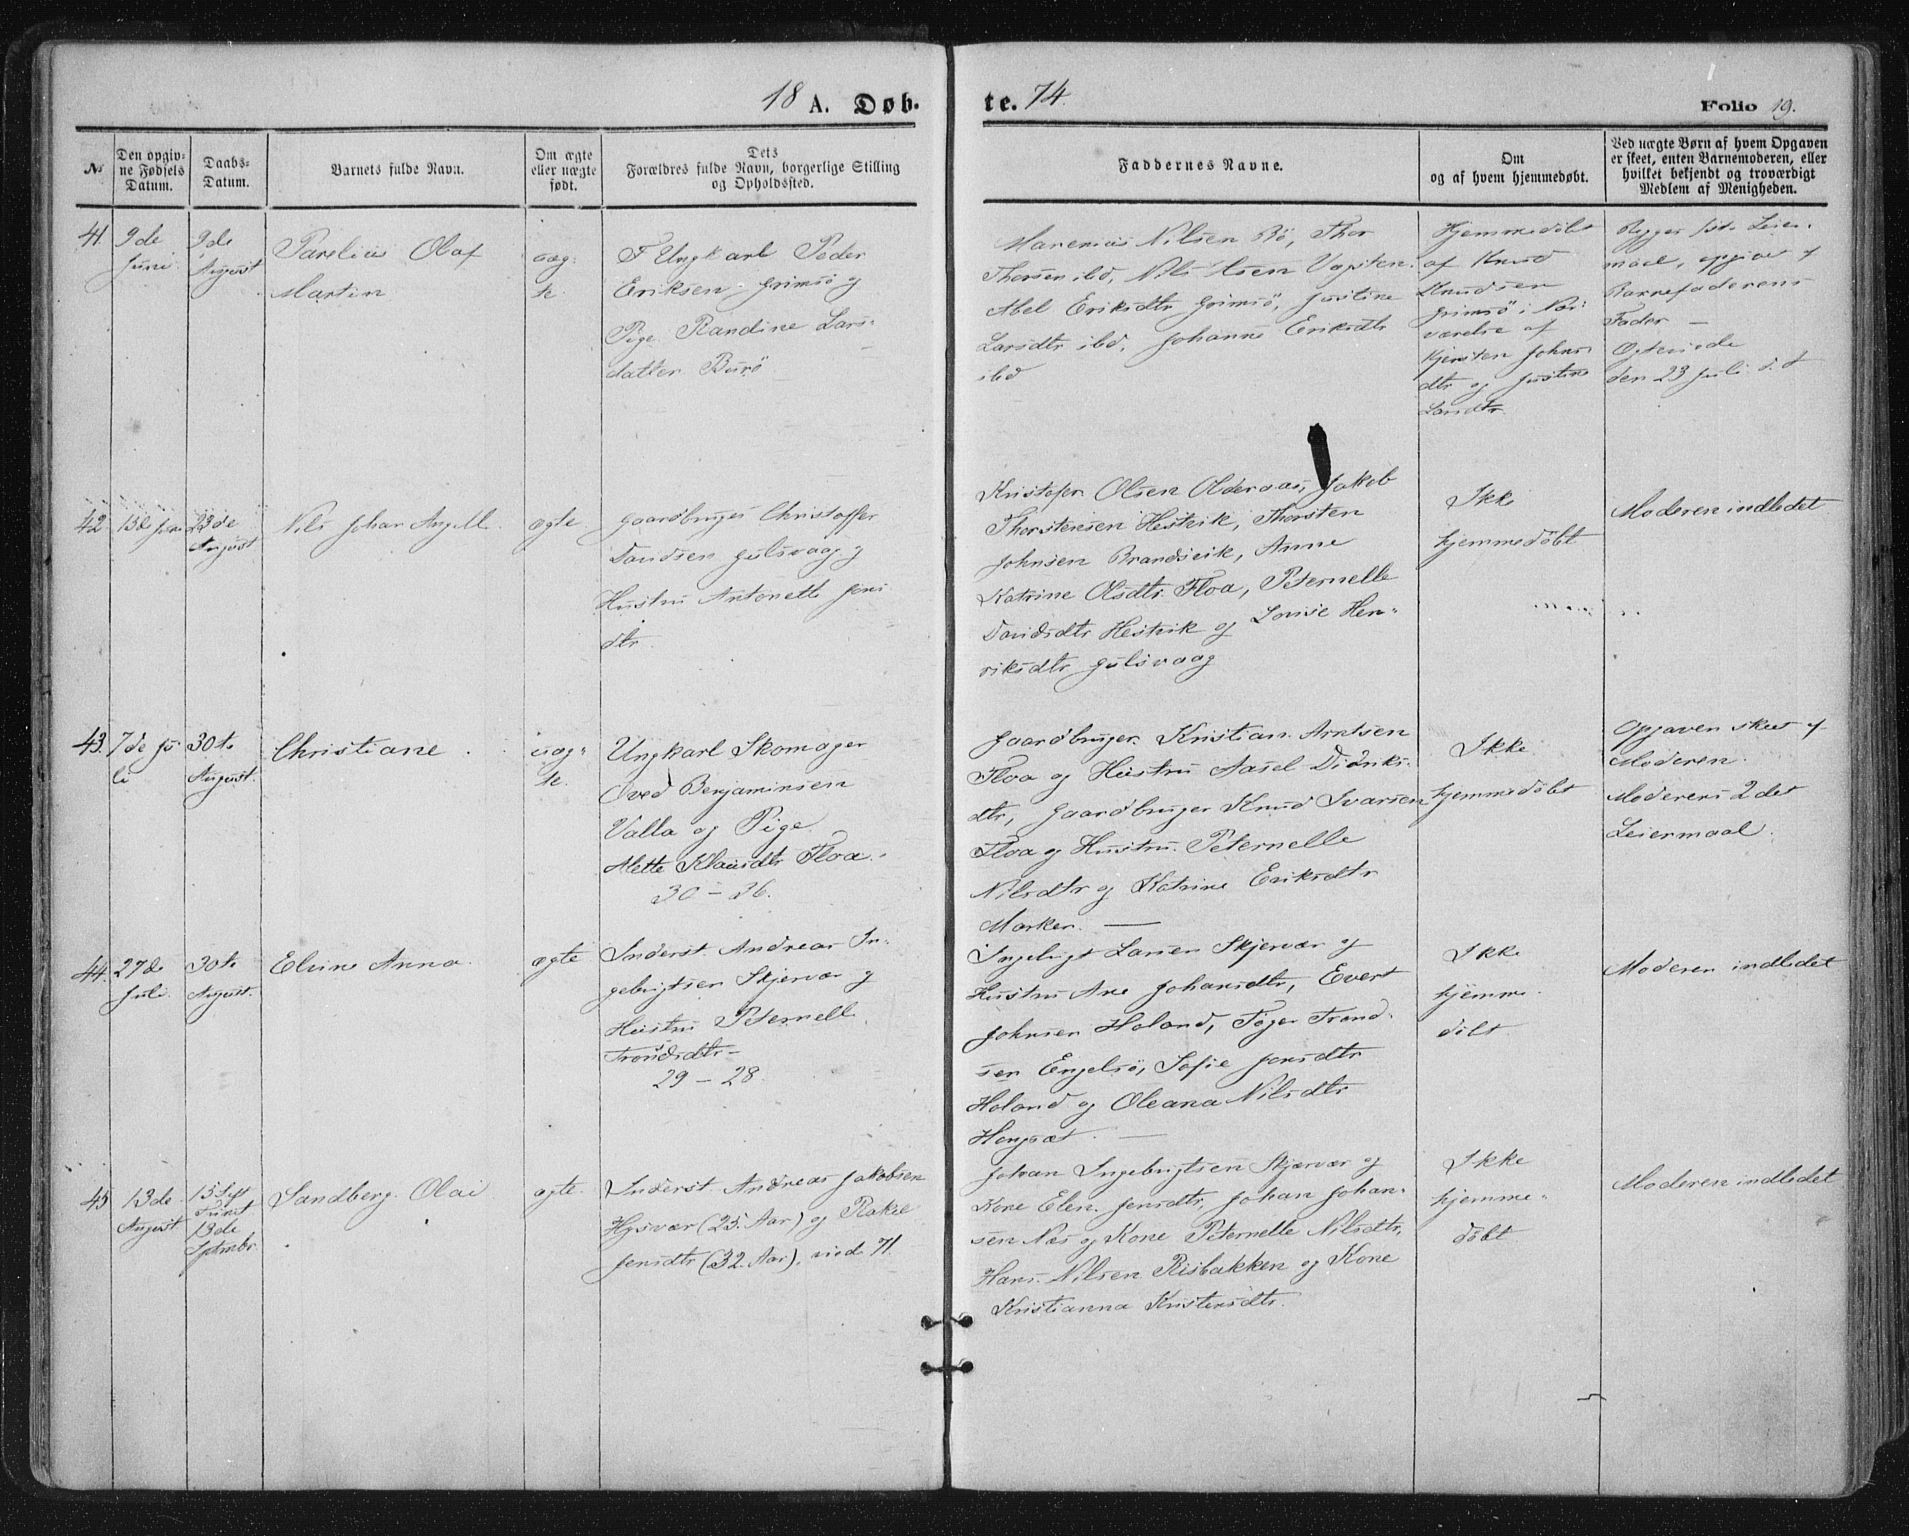 18 A. Døb-
te. 74.
Folio 19.
No
Den opgiv-
ne Fødsels
Datum.
Daabs-
Datum.
Barnets fulde Navn.
Om ægte
eller uægte
født.
Dets
Forældres fulde Navn, borgerlige Stilling
og Opholdssted.
Faddernes Navne.
Om
og af hvem hjemmedøbt.
Ved uægte Børn af hvem Opgaven
er skeet, enten Barnemoderen, eller
hvilket bekjendt og troværdigt
Medlem af Menigheden.
41
9de
Juni.
9de
August
Parelius Olaf
Martin
uæg-
te.
F Ungkarl Peder
Eriksen Grimsö og
Pige Randine Lars-
datter Burö
Nilsen Bö, Thor
Thorsen ibd, Nils Olsen
Abel Eriksdtr Grimsö, Justine
Larsdtr ibd, Johanne Eriksdtr
ibd
Hjemmedöbt
af Knud
Knudsen
Grimsö i Nær
værelse af
Kjersten Johns
dtr og Justine
Larsdtr.
Begges 1ste Leier-
maal, opgivet af
Barnefaderens
Fader —
den 23 Juli d.A
42
13de Juni
23de
August
Nils Johan Angell.
ægte
Gaardbruger Christoffer
Davidsen Gulsvaag og
Hustru Antonette Jens
dtr.
Kristofer Olsen Oldervaas, Jakob
Thorstensen Hestvik, Thorsten
Johnsen Brandsvik, Anne
Katrine Olsdtr Floa, Peternelle
Davidsdtr Hestvik og Lovise Hen-
riksdtr Gulsvaag
Ikke
hjemmedöbt
Moderen indledet
43.
7de Ju-
li
30te
August.
Christiane
uæg-
te.
Ungkarl Skomager
Oved Benjaminsen
Valla og Pige
Mette Klausdtr Floa.
30 – 36.
Gaardbruger Kristian Arntsen
Floa og Hustru Aasel Didriks-
dtr, Gaardbruger Knud Ivarsen
Floa og Hustru Peternelle
Nilsdtr og Katrine Eriksdtr
Marken. —
Ikke
hjemmedöbt
Opgaven skeet af
Moderen.
Moderens 2det
Leiermaal.
44.
27de
Juli.
30te
August.
Eline Anna.
ægte
Inderst Andreas In-
gebrigtsen Skjervær og
Hustru Peternelle
Trondsdtr –
29 – 28.
Ingebrigt Larsen Skjervær og
Hustru Ane Johansdtr, Evert
Johnsen Holand, Peger Trond-
sen Engelsö, Sofie Jonsdtr
Holand og Oleana Nilsdtr
Hongsæt. —
Ikke
hjemme-
döbt
Moderen indledet
45
13de
August
13de
Septmbr
Sandberg Olai
ægte.
Inderst Andreas Jakobsen
Hysvær (25 Aar) og Rakel
Jensdtr (32 Aar), viede 71.
Johan Ingebrigtsen Skjærvær og
Kone Elen Jensdtr, Johan Johan-
sen Næs og Kone Peternelle Nilsdtr,
Hans Nilsen Risbakken og Kone
Kristianna Kristensdtr.
Ikke
hjemme-
döbt
Moderen indledet